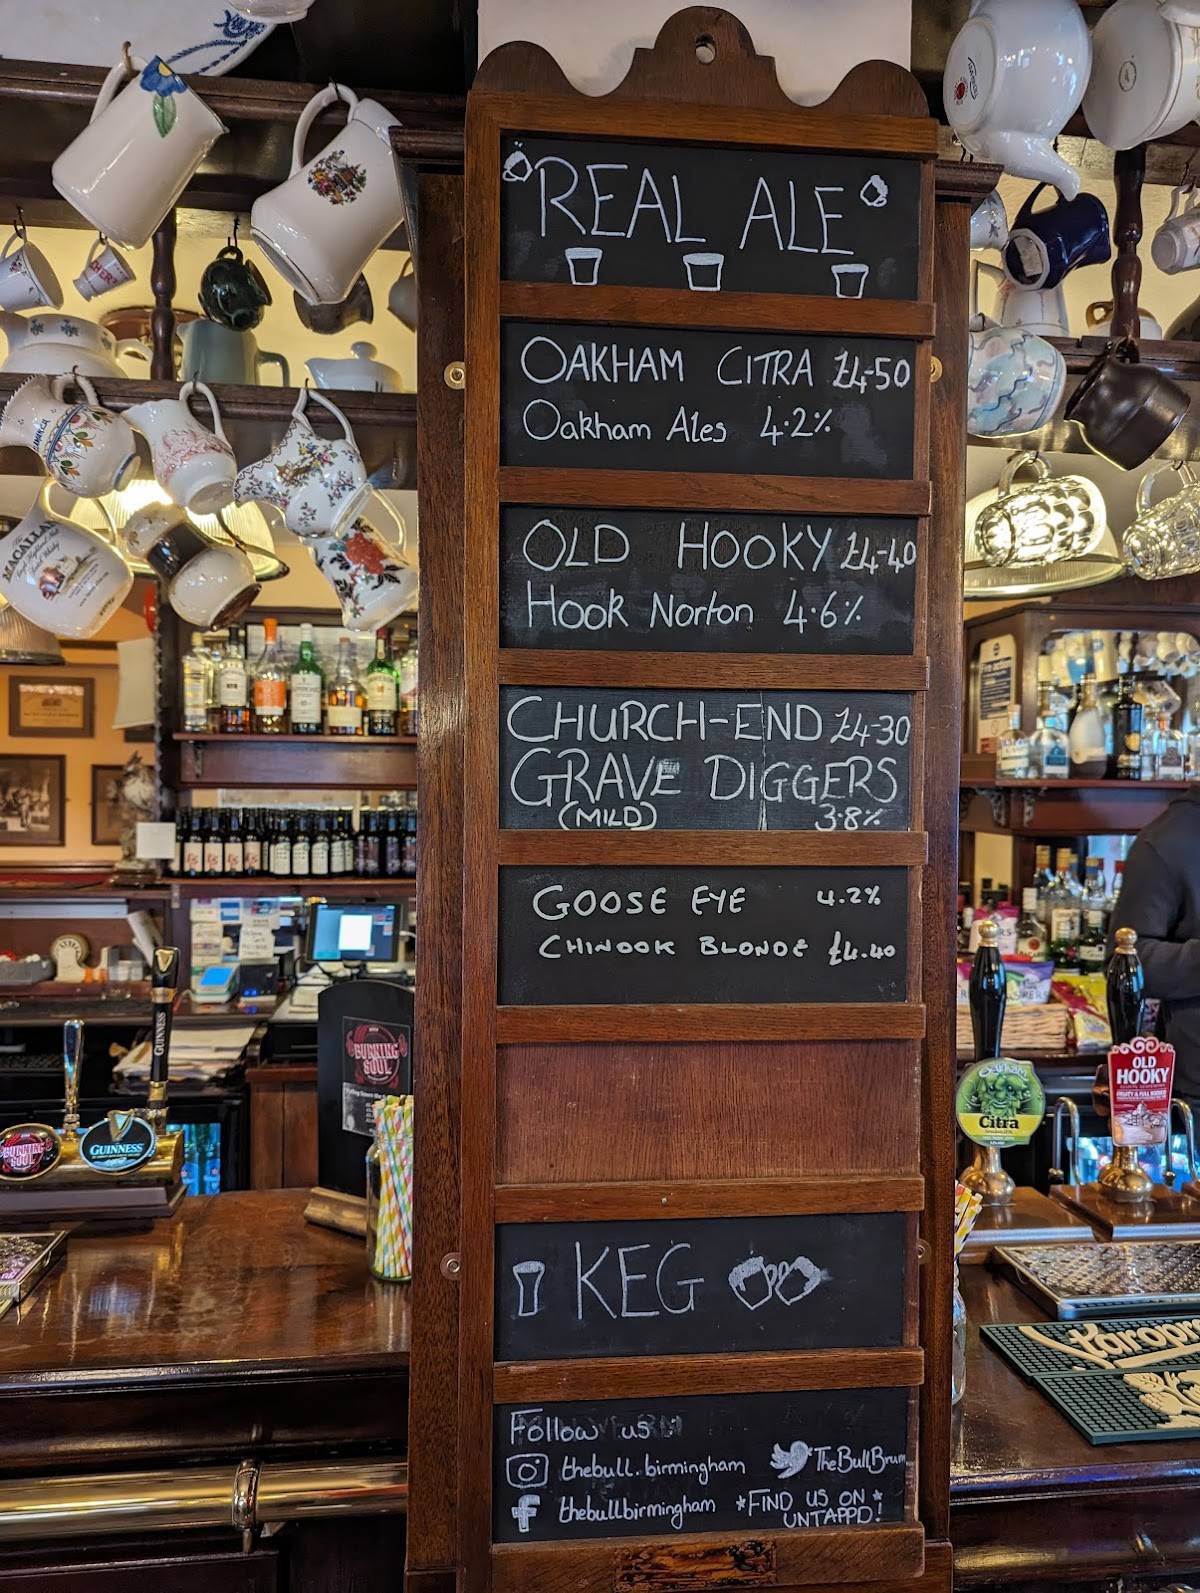 REAL ALE
OAKHAM CITRA £4-50
Oakham Ales 4.2%
OLD HOOKY £4-40
Hook Norton 4.6%
CHURCH-END £4-30
GRAVE DIGGERS
(MILD) 3.8%
GOOSE EYE 4.2%
CHINOOK BLONDE £4.40
KEG
Follow us
thebull.birmingham
TheBullBrum
thebullbirmingham
*FIND US ON*
UNTAPPD!
MACALLAN
GUINNESS
GUINNESS
Oakham
Citra
OLD
HOOKY